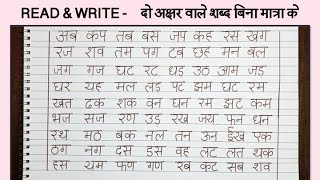 READ & WRITE - दो अक्षर वाले शब्द बिना मात्रा के
अब कप तब बस जप कह रस खग
रज शव तम पग टब छह मन बल
जग गज घट रट धड़ उठ आम जड़
घर यह मल लड़ पट झग घट रग
खत ढक शक वन धन रग झट कग
भज सज रण उड़ रख जय फन धन
रथ मठ बक नल तन ऊन ईख एक
ठग नग दस डस वह लट लत थक
हस यम फण गण रब कट सब शव